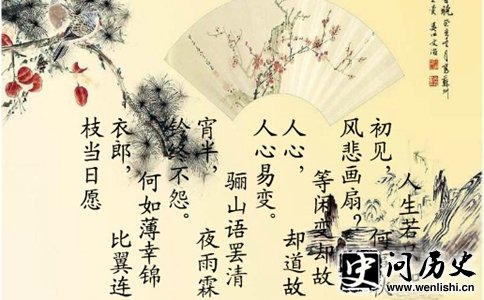 人生若
初见，何
风悲画扇？
等闲变却故
人心，却道故
人心易变。
骊山语罢清
宵半，夜雨霖
铃终不怨。
何如薄幸锦
衣郎，比翼连
枝当日愿
史问历史
www.wenlishi.cn